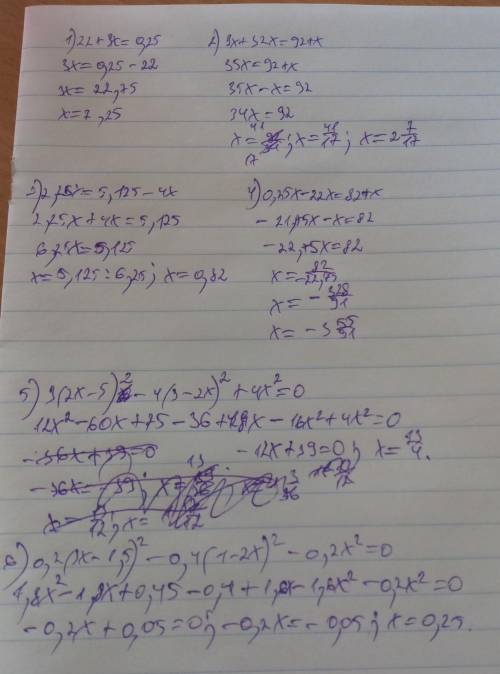 1) 22 + 3x = 0,25
3x = 0,25 - 22
3x = 22,75
x = 7,25
2) 3x + 32x = 92 + x
35x = 92 + x
35x - x = 92
34x = 92
x = 41/17; x = 41/17; x = 2 7/17
3) 2,25x = 5,125 - 4x
2,25x + 4x = 5,125
6,25x = 5,125
x = 5,125 : 6,25; x = 0,82
4) 0,25x - 22x = 82 + x
- 21,75x - x = 82
- 22,75x = 82
x = 82/-22,75
x = - 328/91
x = - 3 55/91
5) 3(2x - 5)² - 4(3 - 2x)² + 4x² = 0
12x² - 60x + 75 - 36 + 48x - 16x² + 4x² = 0
- 36x + 39 = 0 - 12x + 39 = 0; x = 13/4.
6) 0,2(3x - 1,5)² - 0,4(1 - 2x)² - 0,2x² = 0
1,8x² - 1,8x + 0,45 - 0,4 + 1,6x - 1,6x² - 0,2x² = 0
- 0,2x + 0,05 = 0; - 0,2x = - 0,05; x = 0,25.